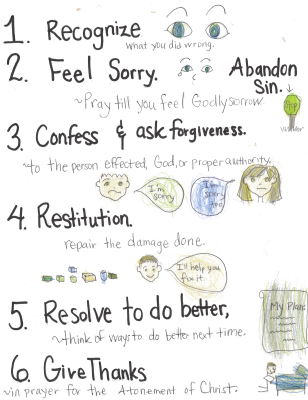 1. Recognize
what you did wrong.
2. Feel Sorry.
Abandon
Sin.
~Pray till you feel Godly sorrow
3. Confess & ask forgiveness.
~to the person effected, God, or proper authority.
I'm
sorry
I'm
sorry
too!
4. Restitution.
repair the damage done.
I'll help you
fix it.
5. Resolve to do better,
~think of ways to do better next time.
My Plans
6. Give Thanks
~in prayer for the Atonement of Christ.